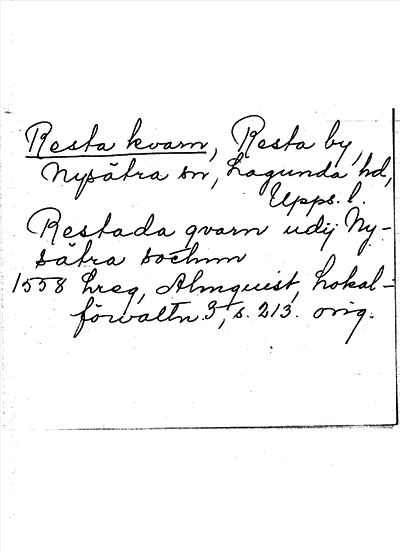 Resta kvarn, Resta by,
Nysätra sn, Lagunda hd,
Upps. l.
Restada qvarn udij Ny-
sätra sochnn
1558 Lreg, Almquist, Lokal-
förvaltn. 3, s. 213. orig.